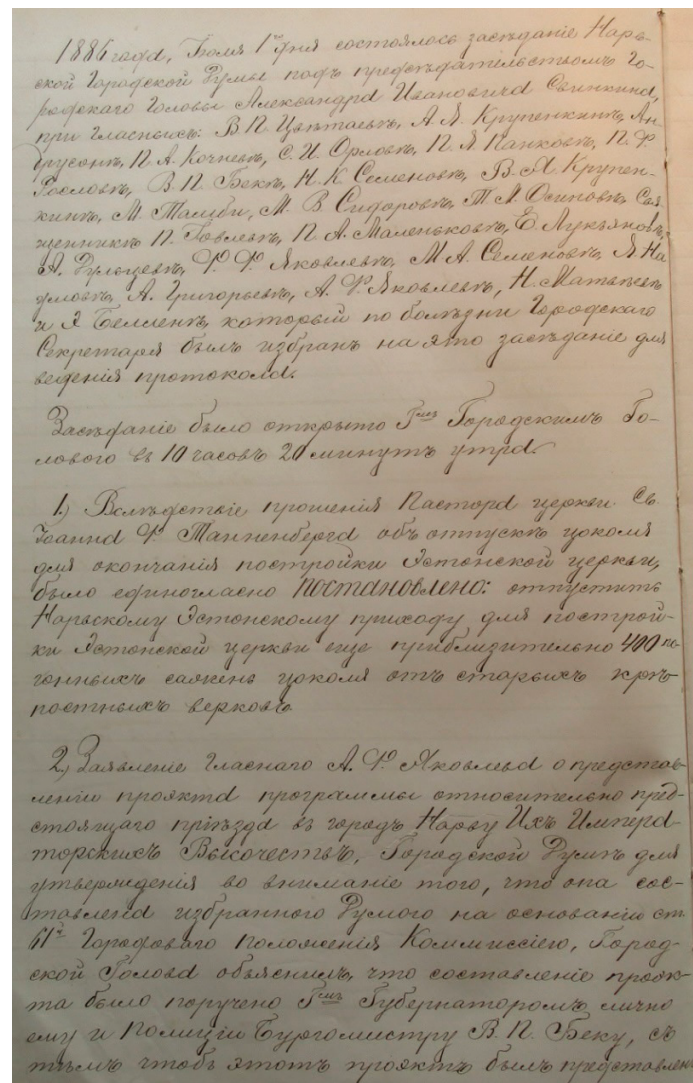 1886 года, Іюля 1го дня состоялось засѣданіе Нарв-
ской Городской Думы подъ предсѣдательствомъ Го-
родскаго Головы Александра Ивановича Свинкина,
при гласныхъ: В. П. Цвѣтаевъ, А. Я. Крупенкинъ, Ан-
друсонъ, П. А. Кочневъ, С. И. Орловъ, П. Я. Панковъ, П. Ф.
Рословъ, В. П. Бекъ, Н. К. Семеновъ, В. А. Крупен-
кинъ, М. Талуби, М. В. Сидоровъ, Т. М. Осиповъ, Свя-
щенникъ П. Іовлевъ, П. А. Маленьковъ, Е. Лукьяновъ,
А. Дульцевъ, Ф. Ф. Яковлевъ, М. А. Семеновъ, Я. На-
А. Григорьевъ, А. Ф. Яковлевъ, Н. Матвѣевъ
и Я Белленъ, который по болѣзни Городскаго
Секретаря былъ избранъ на это засѣданіе для
веденія протокола.
Засѣданіе было открыто Гмъ Городскимъ Го-
ловою въ 10 часовъ 20 минутъ утра.
1.) Вслѣдствіе прошенія Пастора церкви Св.
Іоанна Ф. Танненберга объ отпускѣ цоколя
для окончанія постройки Эстонской церкви,
было единогласно постановлено: отпустить
Нарвскому Эстонскому приходу для построй-
ки Эстонской церкви еще приблизительно 400 по-
гонныхъ саженъ цоколя отъ старыхъ крѣ-
постныхъ верковъ.
2.) Заявленіе гласнаго А. Ф. Яковлева о представ-
леніи проэкта программы относительно пред-
стоящаго пріѣзда въ городъ Нарву Ихъ Импера-
торскихъ Высочествъ, Городской Думѣ для
утвержденія во вниманіе того, что она сос-
тавлена избранного Думого на основаніи ст.
61й Городоваго положенія Коммиссіею, Город-
ской Голова объяснилъ, что составленіе проэк-
та было поручено Гмъ Губернаторомъ лично
ему и Полиціи Бургомистру В. П. Беку, съ
тѣмъ чтобъ этотъ проэктъ былъ представленъ